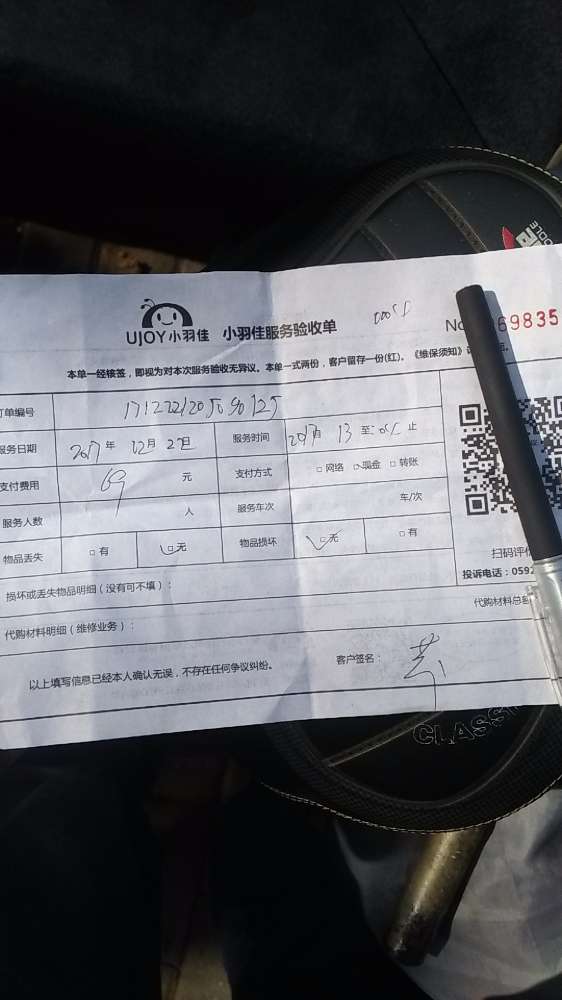 UJOY小羽佳 小羽佳服务验收单 69835
本单一经核签，即视为对本次服务验收无异议。本单一式两份，客户留存一份(红)。《维保须知》
单编号
服务日期 2017年 12月 服务时间 13 至 止
支付费用 69 元 支付方式 □网络 现金 □转账
服务人数 人 服务车次 车/次
物品丢失 □有 □无 物品损坏 □无 □有
扫码评
投诉电话：059
损坏或丢失物品明细（没有可不填）：
代购材料明细（维修业务）： 代购材料总
以上填写信息已经本人确认无误，不存在任何争议纠纷。 客户签名：
CLASS